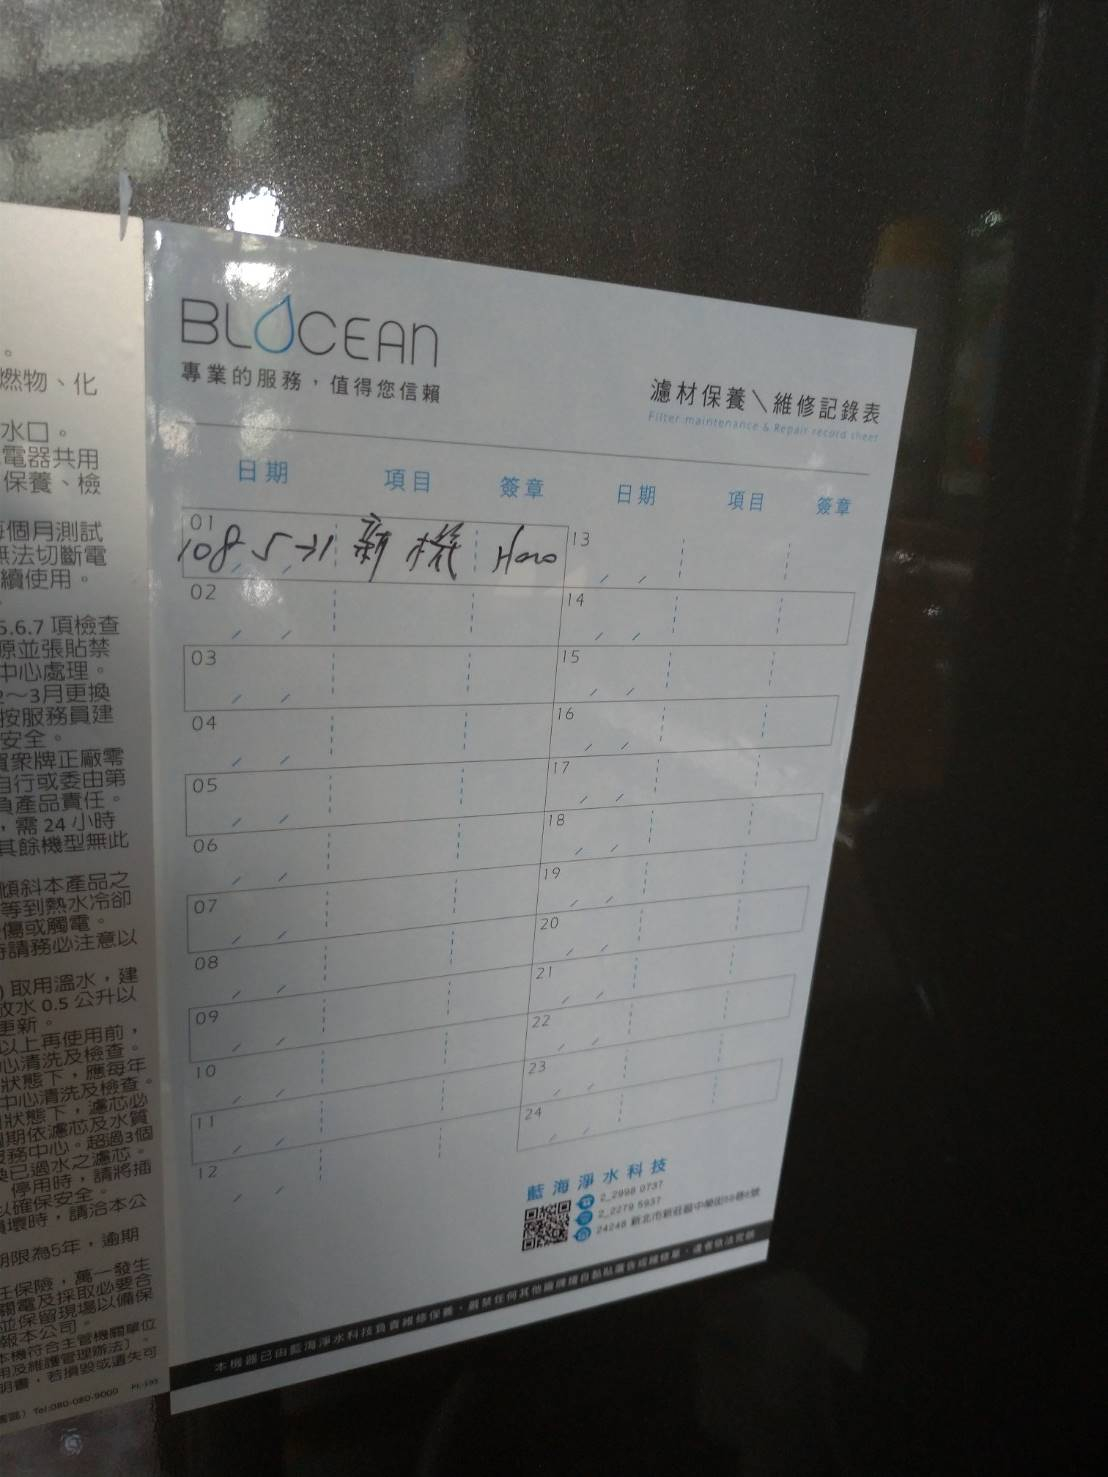 。
燃物、化
水口。
電器共用
保養、檢
每個月測試
無法切斷電
續使用。
5.6.7 項檢查
原並張貼禁
中心處理。
2～3月更換
按服務員建
安全。
賀眾牌正廠零
自行或委由第
負產品責任。
，需 24 小時
其餘機型無此
傾斜本產品之
等到熱水冷卻
傷或觸電。
時請務必注意以
) 取用溫水，建
放水 0.5 公升以
更新。
以上再使用前，
心清洗及檢查。
狀態下，應每年
中心清洗及檢查。
狀態下，濾芯必
期依濾芯及水質
服務中心。超過3個
換已過水之濾芯。
停用時，請將插
以確保安全。
損壞時，請洽本公
期限為5年，逾期
任保險，萬一發生
關電及採取必要合
並保留現場以備保
報本公司。
本機符合主管機關單位
用及維護管理辦法〕。
明書，若損毀或遺失可
Tel:080-080-9000
BLOCEAN
專業的服務，值得您信賴
濾材保養\維修記錄表
Filter maintenance & Repair record sheet
日期 項目 簽章 日期 項目 簽章
01 108 5 →1 新機 13
02 14
03 15
04 16
05 17
06 18
07 19
08 20
09 21
10 22
11 23
12 24
藍海淨水科技
2_2998 0737
2_2279 5937
24248 新北市新莊區中榮街
本機器已由藍海淨水科技負責維修保養，嚴禁任何其他廠牌擅自黏貼廣告或維修單，違者依法究辦